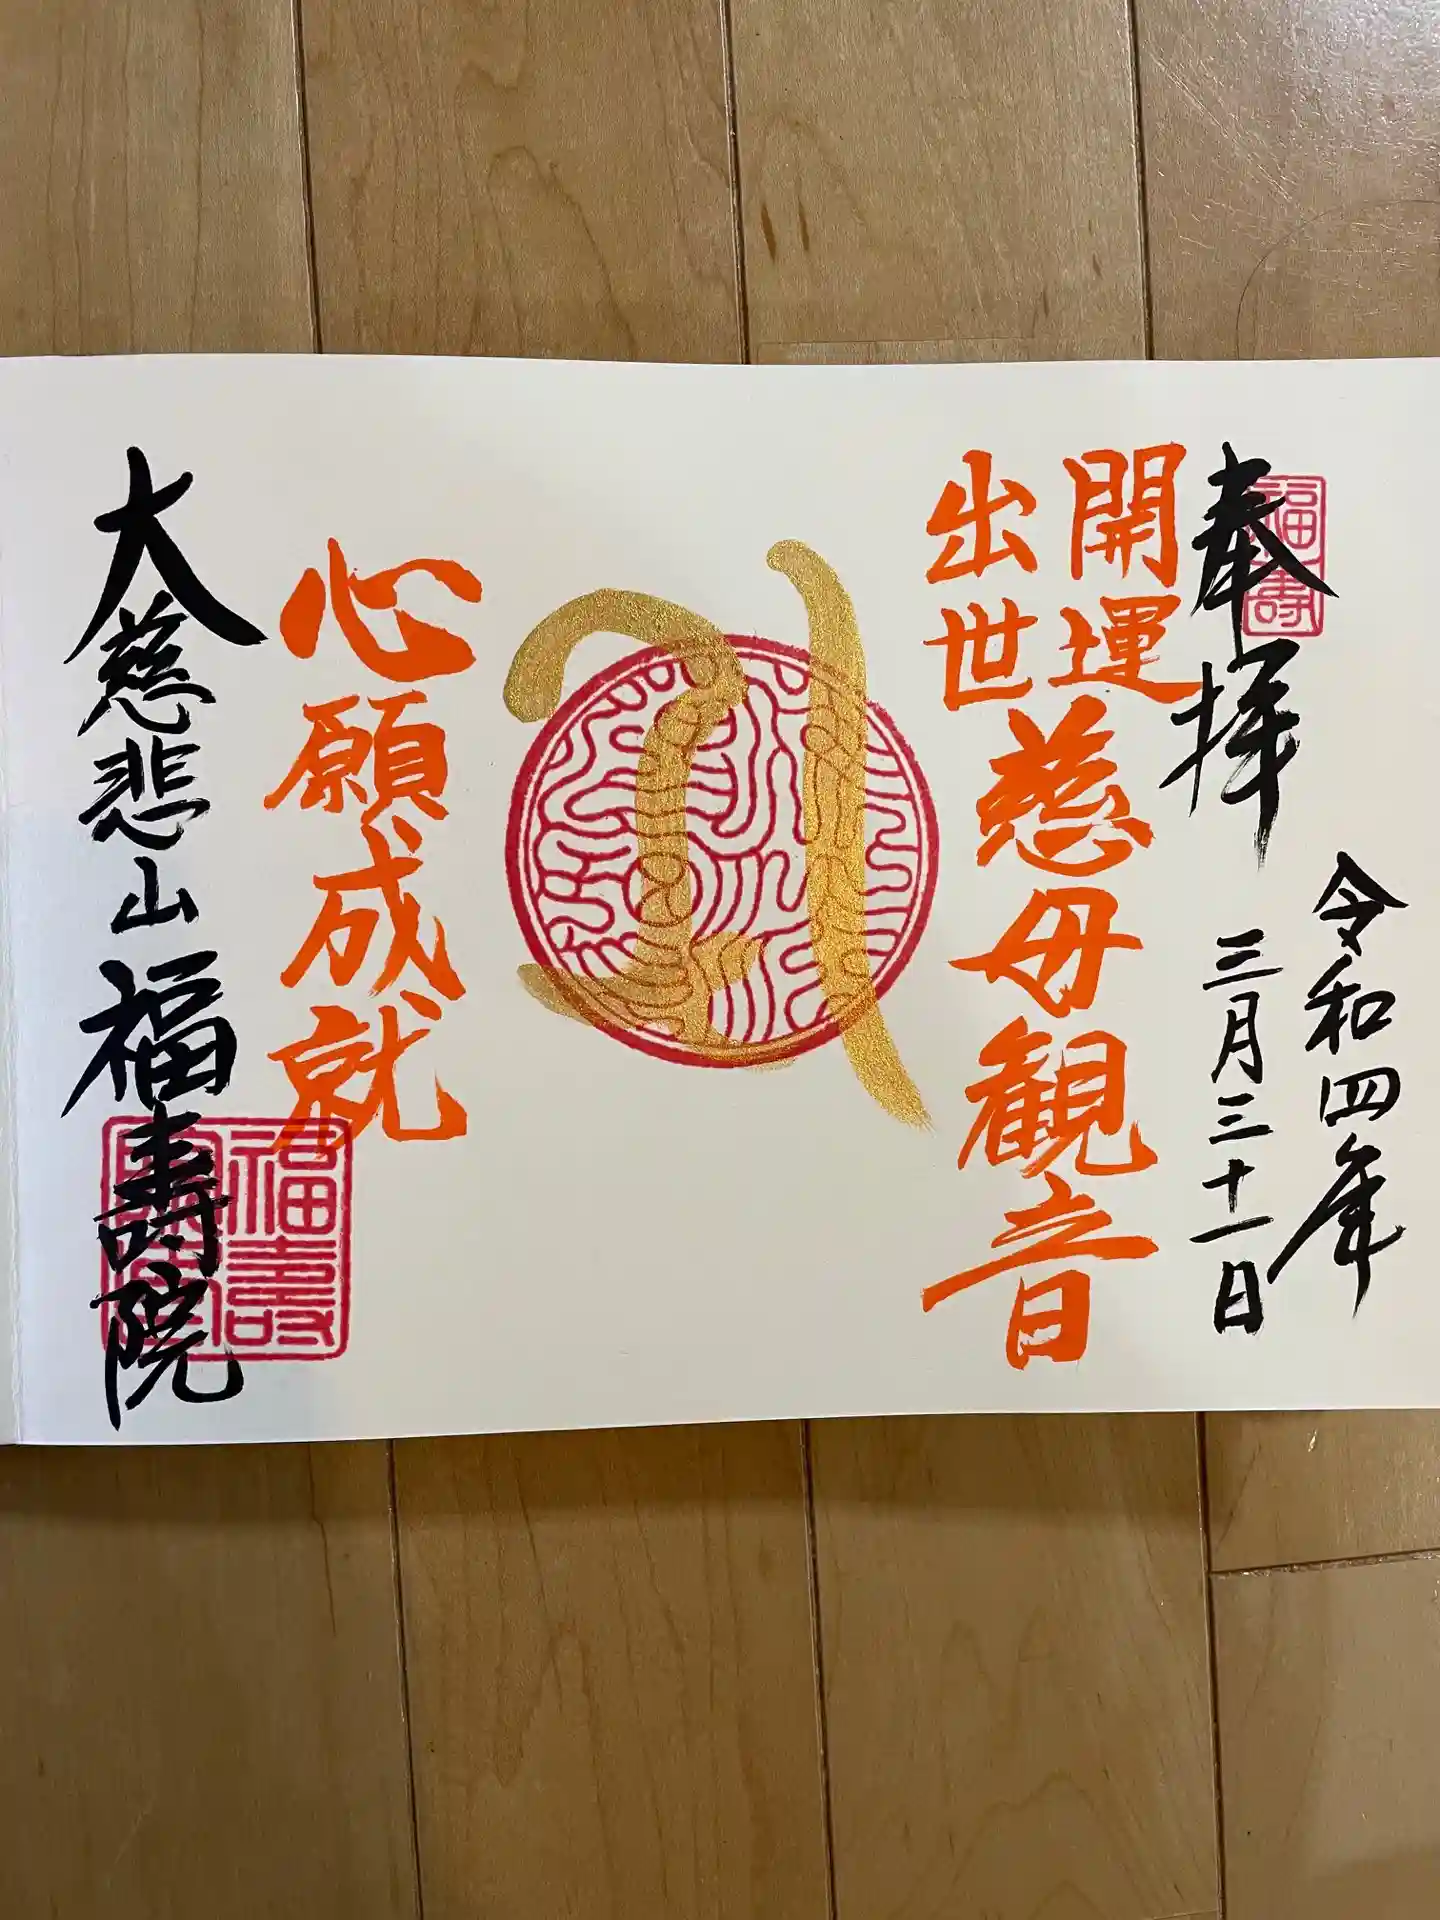 奉拝
福寿
令和四年
三月三十一日
開運
出世
慈母観音
心願成就
大慈悲山福寿院
福壽